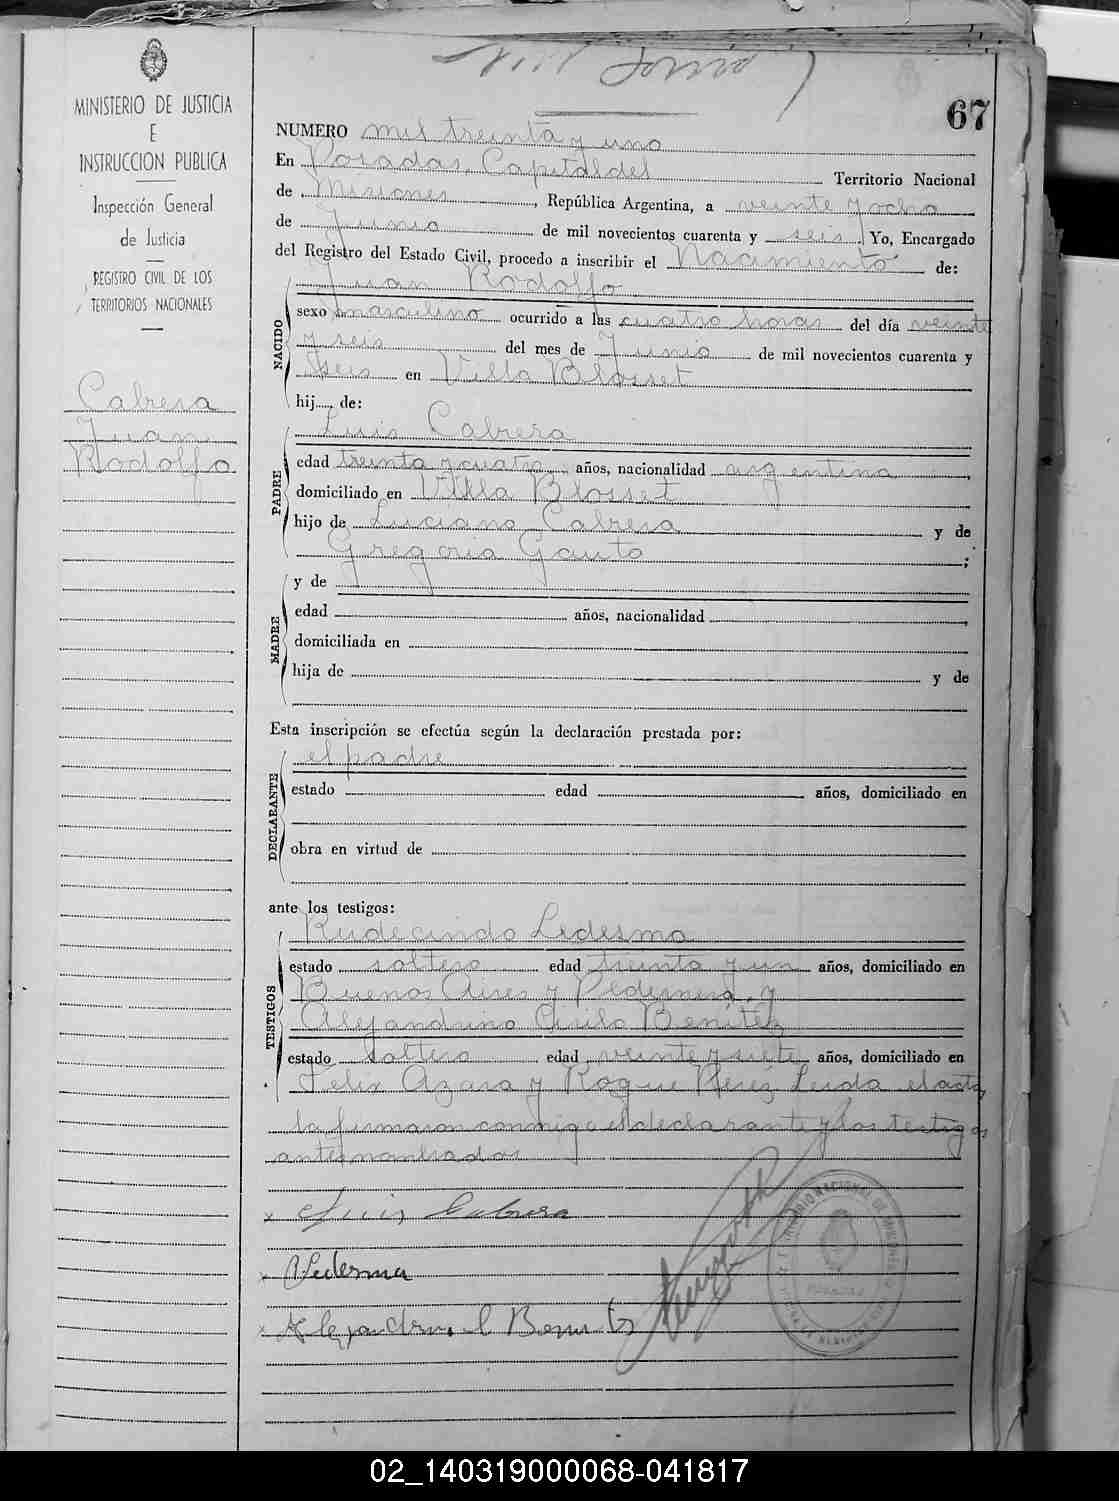 67
MINISTERIO DE JUSTICIA
E
INSTRUCCION PUBLICA
Inspección General
de Justicia
REGISTRO CIVIL DE LOS
TERRITORIOS NACIONALES
Cabrera
Juan
Rodolfo
NUMERO mil treinta y uno
En Posadas, Capital del Territorio Nacional
de Misiones, República Argentina, a veinte y ocho
de Junio de mil novecientos cuarenta y seis Yo, Encargado
del Registro del Estado Civil, procedo a inscribir el Nacimiento de:
NACIDO
Juan Rodolfo
sexo masculino ocurrido a las cuatro horas del día veinte
y seis del mes de Junio de mil novecientos cuarenta y
seis en Villa Blosset
hij de:
PADRE
Luis Cabrera
edad treinta y cuatro años, nacionalidad argentina,
domiciliado en Villa Blosset
hijo de Luciano Cabrera y de
Gregoria Gauto;
MADRE
y de
edad años, nacionalidad
domiciliada en
hija de y de
Esta inscripción se efectúa según la declaración prestada por:
DECLARANTE
el padre
estado edad años, domiciliado en
obra en virtud de
ante los testigos:
TESTIGOS
Rudecindo Ledesma
estado soltero edad treinta y un años, domiciliado en
Buenos Aires y Pedernera, y
Alejandrino Cirilo Benítez
estado soltero edad veinte y siete años, domiciliado en
Felix Azara y Roque Perez Leida el acta,
la firmaron conmigo el declarante y los testigos
antes nombrados
Luis Cabrera
Ledesma
Benitez
02_140319000068-041817